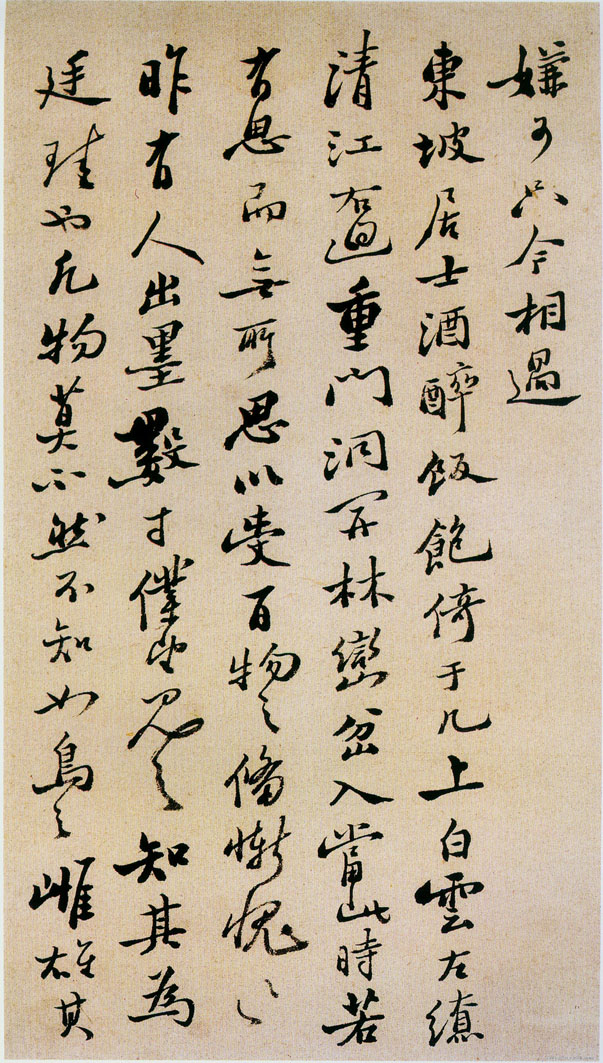 嫌了只令相過
東坡居士酒醉飯飽倚于几上白雲左繚
清江右洄重門洞開林巒坌入當此時若
有思而無所思以受百物之備慚愧〻
昨有人出墨數寸僕望見之知其為
廷珪也凡物莫不然不知如烏之雌雄其